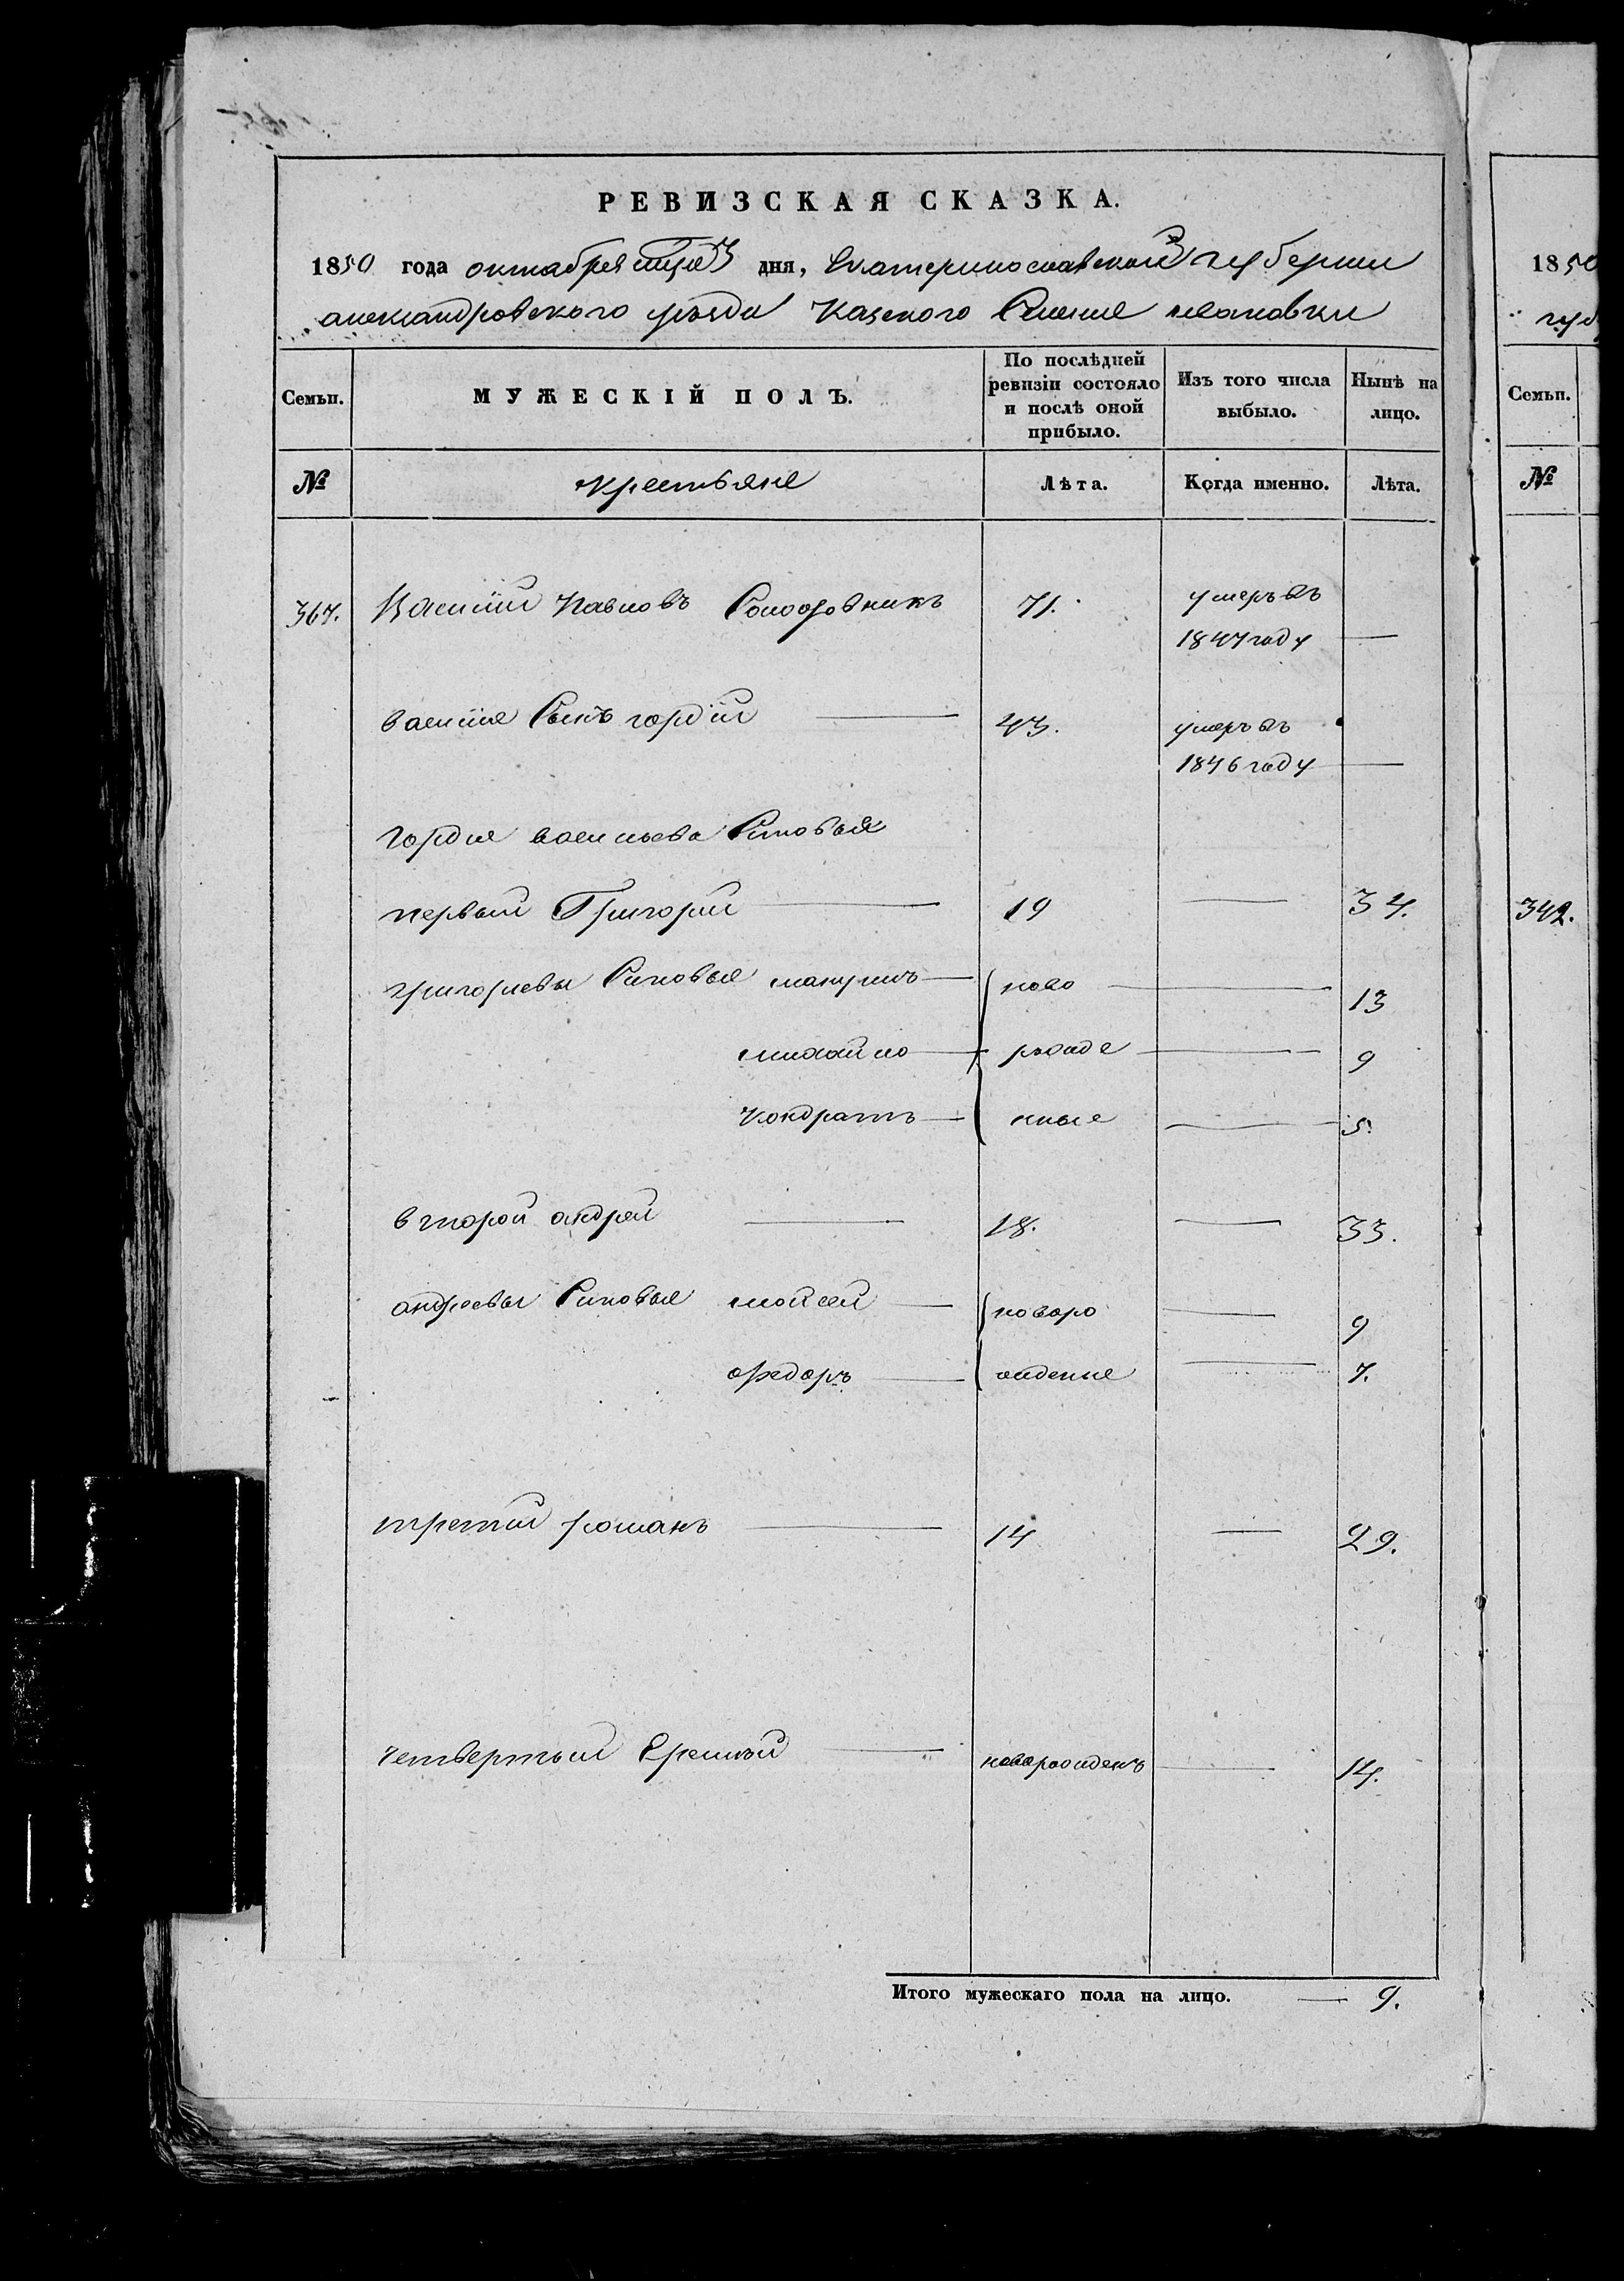 РЕВИЗСКАЯ СКАЗКА.
1850 года октября дня, Екатеринославской губернии
александровского уезда Казеного Селения
Семьи.
МУЖЕСКІЙ ПОЛЪ.
По послѣдней ревизіи состояло и послѣ оной прибыло.
Изъ того числа выбыло.
Нынѣ на лицо.
№ крестьяне Лѣта. Когда именно. Лѣта.
367. Василий Павловъ 71. умеръ въ
1847 году
василия Сынъ гордій 43. умеръ въ
1846 году
Гордия васильева Синовья
первый Григорий 19 34.
григориевы Синовья макуимъ ново 13
михайло рожде 9
Кондратъ нные 5.
второй андрей 18. 33.
андреевы Синовья мойсей новоро 9
федоръ жденые 7.
третий романъ 14 29.
четвертый Еремѣй новорожденъ 14.
Итого мужескаго пола на лицо. 9.
1850
губ
Семьи.
№
342.